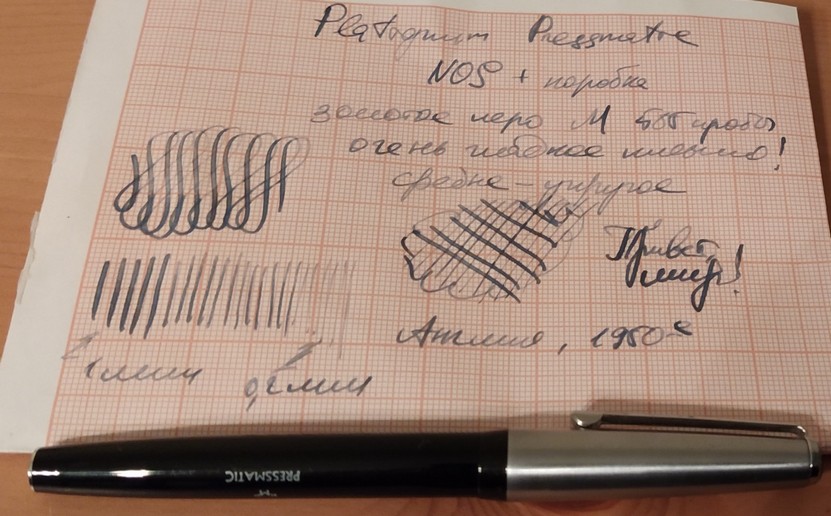 Platignum Pressmatic
NOS + коробка
золотое перо М 585 пробы
очень гибкое
средне-упругое
Привет,
мир!
Англия, 1950-е
1 мм
0,2 мм
"M"
PRESSMATIC